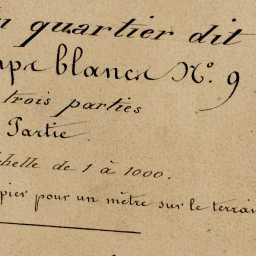 quartier dit
blancs N.º 9
trois parties
Partie
chelle de 1 à 1000.
pier pour un mètre sur le terrai